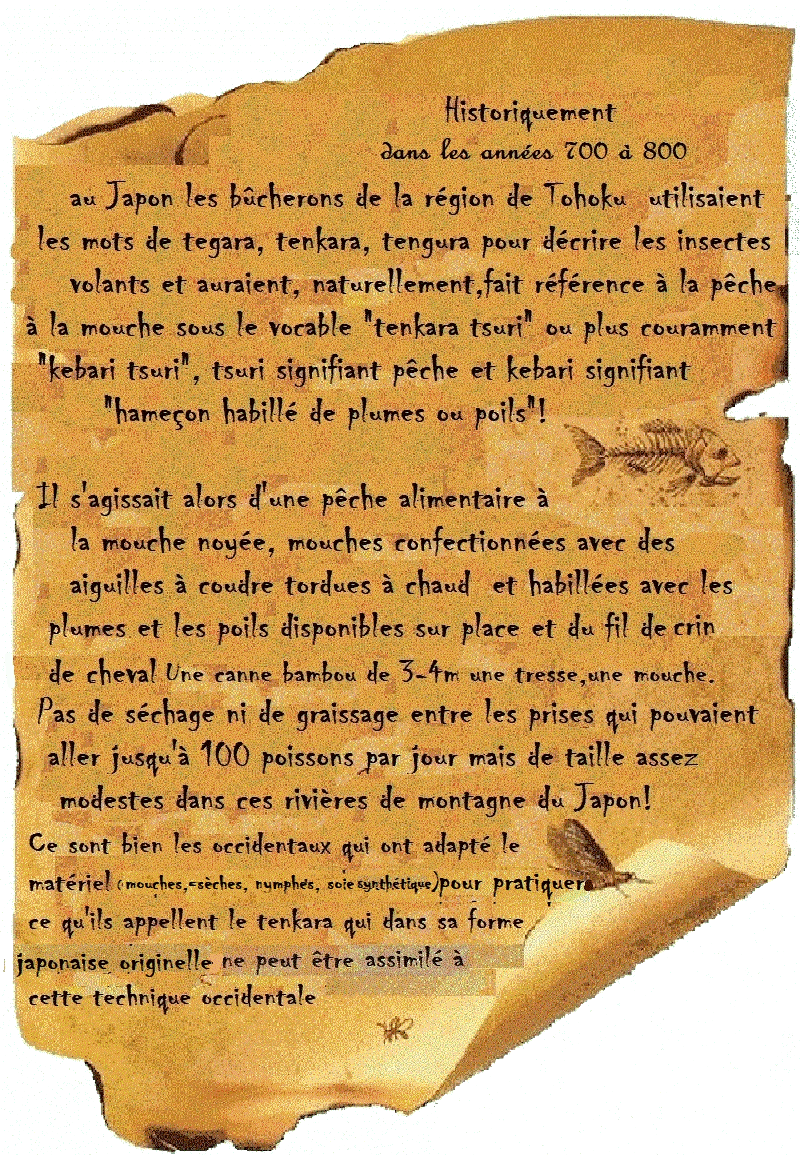 Historiquement
dans les années 700 à 800
au Japon les bûcherons de la région de Tohoku utilisaient
les mots de tegara, tenkara, tengura pour décrire les insectes
volants et auraient, naturellement,fait référence à la pêche
à la mouche sous le vocable "tenkara tsuri" ou plus couramment
"kebari tsuri", tsuri signifiant pêche et kebari signifiant
"hameçon habillé de plumes ou poils"!
Il s'agissait alors d'une pêche alimentaire à
la mouche noyée, mouches confectionnées avec des
aiguilles à coudre tordues à chaud et habillées avec les
plumes et les poils disponibles sur place et du fil de crin
de cheval Une canne bambou de 3-4m une tresse,une mouche.
Pas de séchage ni de graissage entre les prises qui pouvaient
aller jusqu'à 100 poissons par jour mais de taille assez
modestes dans ces rivières de montagne du Japon!
Ce sont bien les occidentaux qui ont adapté le
matériel (mouches,=sèches, nymphes, soie synthétique)pour pratiquer
ce qu'ils appellent le tenkara qui dans sa forme
japonaise originelle ne peut être assimilé à
cette technique occidentale